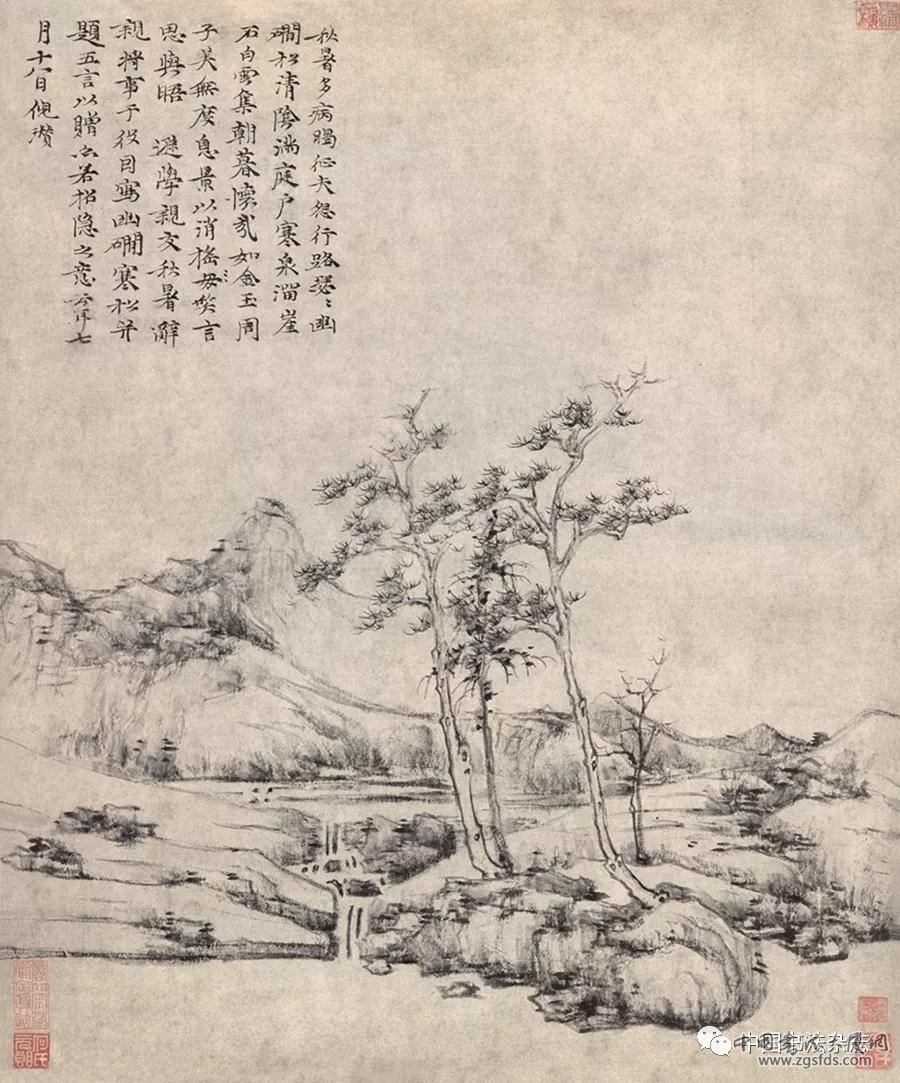 秋暑多病暍征夫怨行路瑟〻幽
磵松清陰滿庭戶寒泉溜崖
石白雲集朝暮懷哉如金玉周
子美無度息景以消搖毋笑言
思與晤 遜學親友秋暑辭
親將事于役因寫幽磵寒松并
題五言以贈亦若招隱之意云耳七
月十八日倪瓚
何氏元朗
中国书法杂志
www.zgsfds.com